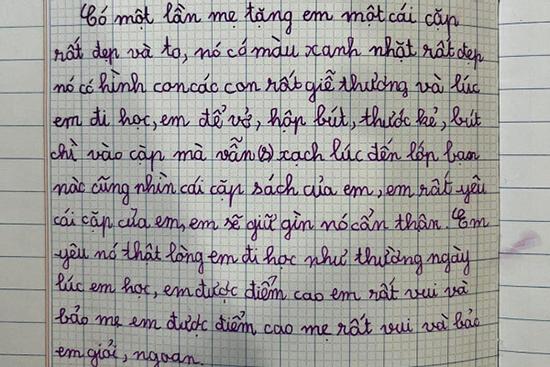 Có một lần mẹ tặng em một cái cặp
rất đẹp và to, nó có màu xanh nhặt rất đẹp
nó có hình con các con rất giễ thương và lúc
em đi học, em để vở, hộp bút, thước kẻ, bút
chì vào cặp mà vẫn (2) xạch lúc đến lớp bạn
nàc cũng nhìn cái cặp sách của em, em rất yêu
cái cặp của em, em sẽ giữ gìn nó cẩn thận. Em
yêu nó thật lòng em đi học như thường ngày
lúc em học, em được điểm cao em rất vui và
bảo mẹ em được điểm cao mẹ rất vui và bảo
em giỏi, ngoan.